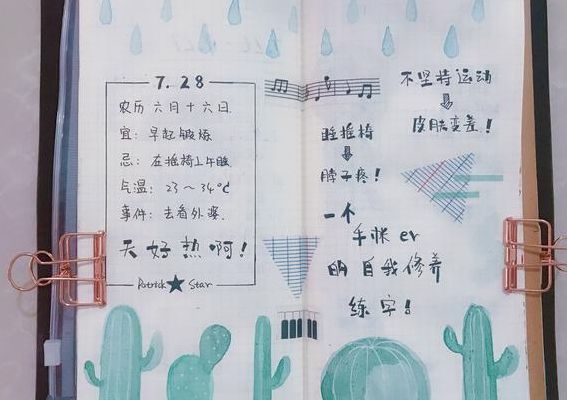 7.28
农历六月十六日
宜：早起锻炼
忌：在摇椅上午睡
气温：23～34℃
事件：去看外婆.
天好热啊！
Patrick ★ Star
不坚持运动
皮肤变差！
睡摇椅
脖子疼！
一个
手帐er
的自我修养
练字！